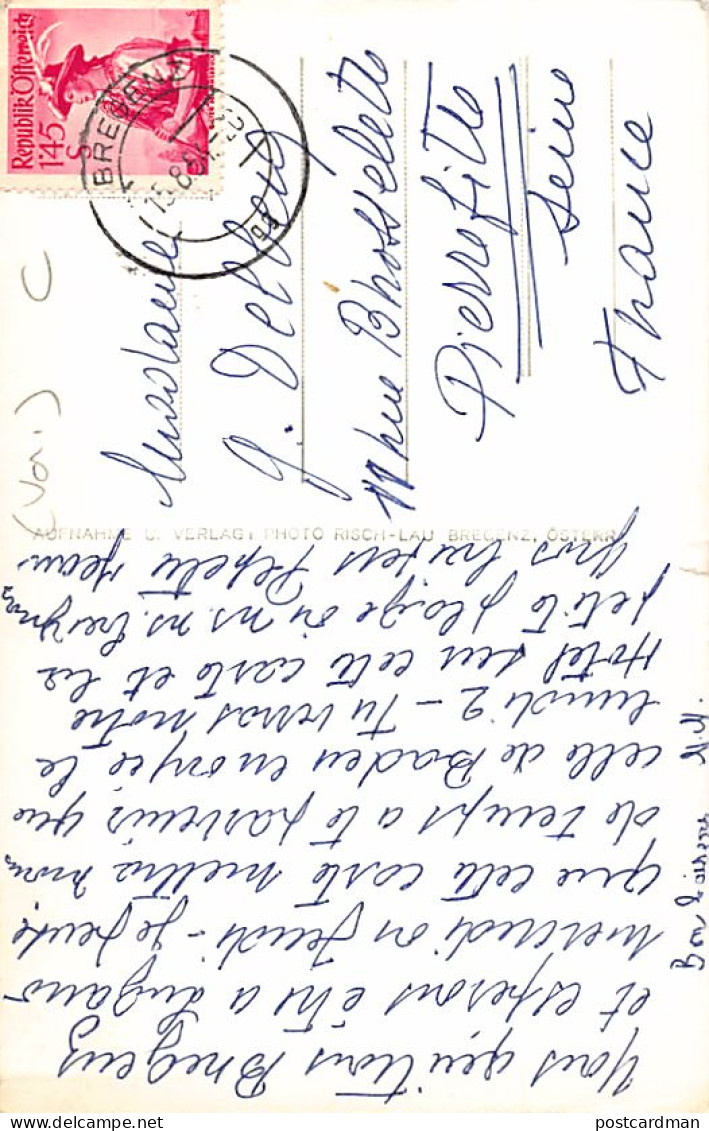 Republik Österreich
1'45
S
BREGENZ
15.8.51
9g
Madame
G. Delberg
rue Bhosselette
Pierrefitte
Seine
France
C
(Vor.)
AUFNAHME U. VERLAG: PHOTO RISCH-LAU BREGENZ, ÖSTERR.
Nous quittons Bregenz
et esperons être a Lugano
mercredi ou jeudi - je pense
que cette carte mettra moins
de temps a te parvenir que
celle de Baden envoyée le
lundi 2 - Tu verras notre
Hotel sur cette carte et la
petite plage où ns. ns. baignons
Gros baisers
Bon baisers
postcardman